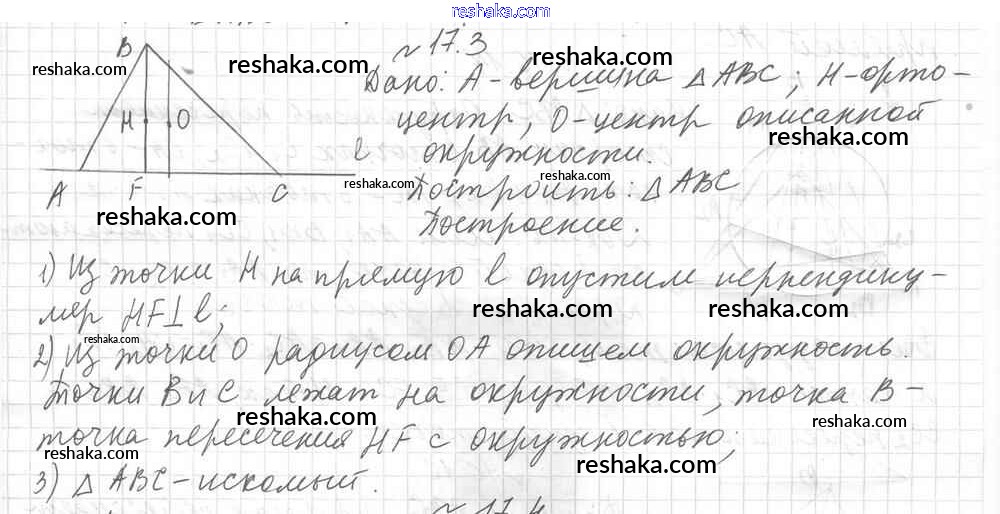 reshaka.com
№ 17.3
Дано: А-вершина △ АВС; Н-орто-
центр, О-центр описанной
окружности.
Построить: △ АВС
Построение.
B
H
O
l
A
F
C
1) Из точки Н на прямую l опустим перпендику-
ляр HF⊥l;
2) Из точки О радиусом ОА опишем окружность.
Точки В и С лежат на окружности, точка В-
точка пересечения HF с окружностью;
3) △ АВС-искомый.
№ 17.4
reshaka.com
reshaka.com
reshaka.com
reshaka.com
reshaka.com
reshaka.com
reshaka.com
reshaka.com
reshaka.com
reshaka.com
reshaka.com
reshaka.com
reshaka.com